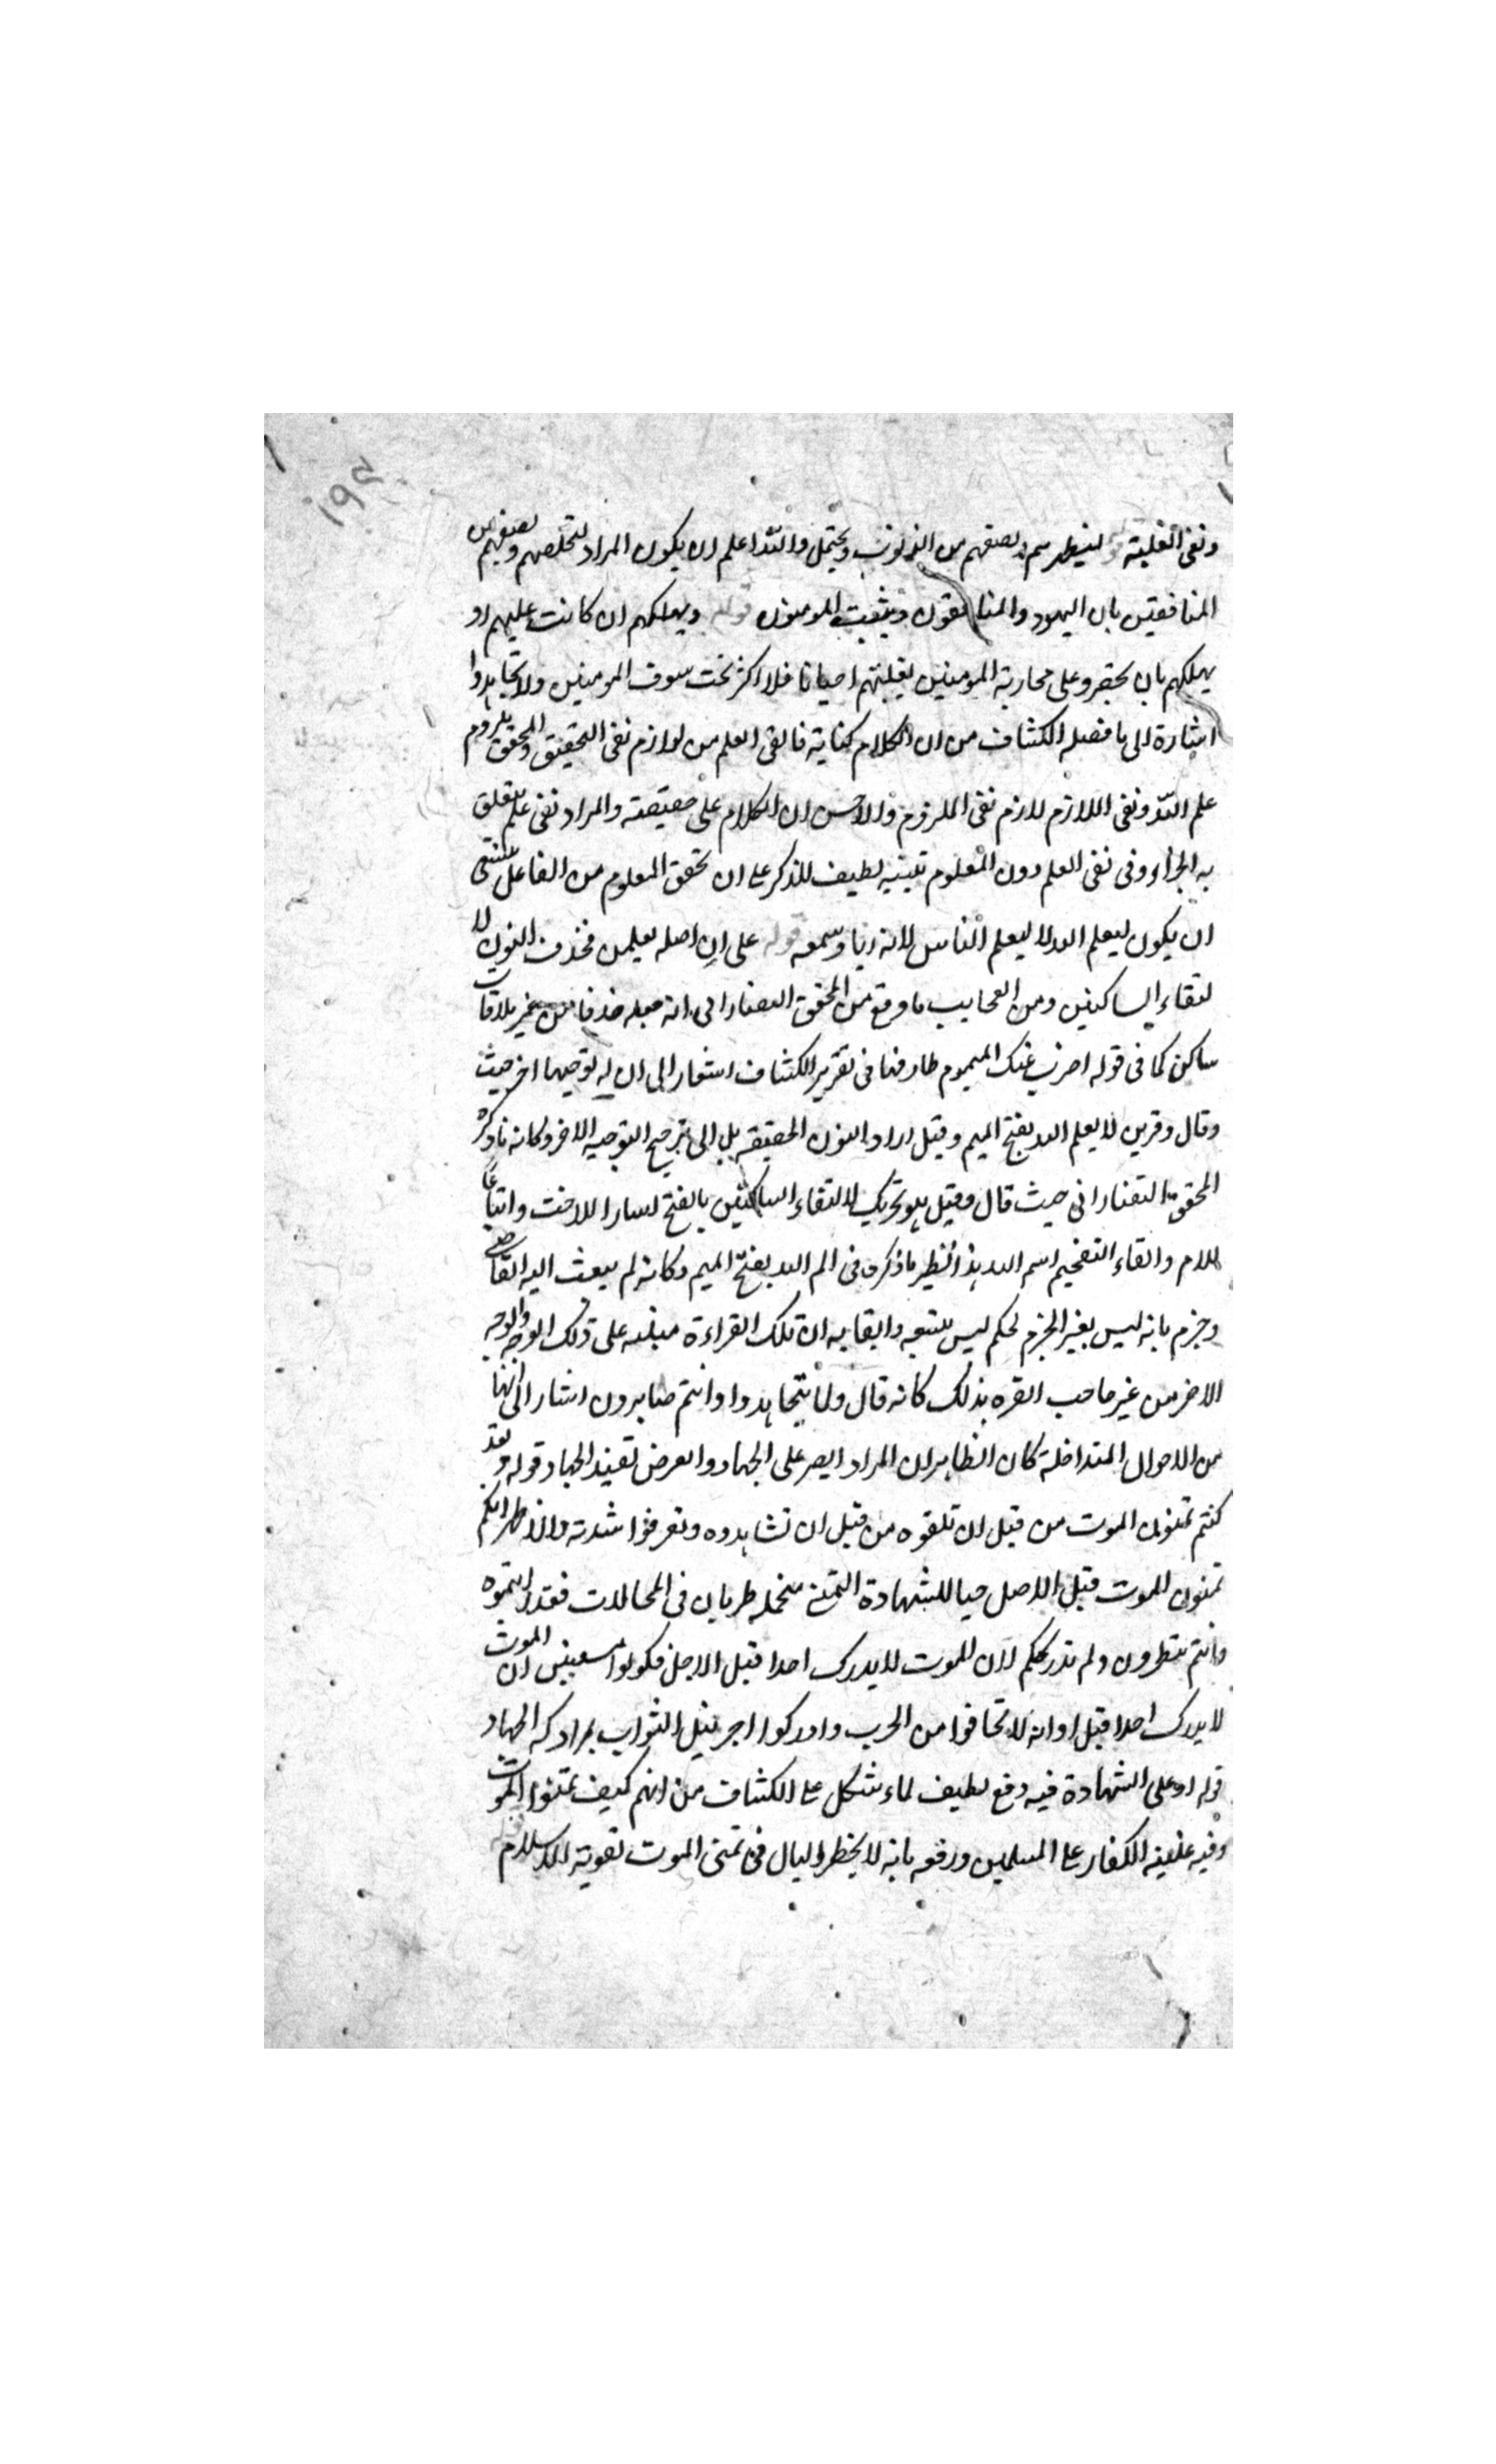 ١٩٤
ونفى الغلبة قوله ليطهرهم ويصفيهم من الذنوب ويحتمل والله اعلم ان يكون المراد ليخلصهم ويصفيهم من
المنافقين بان اليهود والمنافقون ويثبت المومنون قوله ويهلكهم ان كانت عليهم او
يهلكهم بان يحضروا على محاربة المومنين بغلبتهم احيانا فلا اكثر تحت سوف المومنين ولا تجاهدوا
اشارة الى ما فصله الكشاف من ان الكلام كناية فالقى العلم من لوازم نفى التحقيق والمحقق يلزوم
علم الله ونفى اللازم لازم نفى الملزوم والاحسن ان الكلام على حقيقته والمراد نفى علم يتعلق
به الجزاء وفى نفى العلم دون المعلوم تنبيه لطيف للذكر على ان تحقق المعلوم من الفاعل ينبغى
ان يكون ليعلم الله لا ليعلم الناس لانه ريا وسمعه قوله على ان اصله يعلمن فحذف النون لا
لتقاء الساكنين ومن العجايب ما وقع من المحقق التفتازانى انه جعله حذفا من غير ملاقات
ساكن كما فى قوله اضرب عنك الهموم طارقها فى تقرير الكشاف اشعار الى ان له توجيها اخر حيث
وقال وقرىن لا يعلم الله بفتح الميم وقيل اراد النون الحقيقه بل الى ترجيح التوجيه الاخر وكانه ما ذكره
المحقق التفتازانى حيث قال وقيل هو تحريك لالتقاء الساكنين بالفتح لسارا للاخت واتباعا
للام وابقاء التفخيم اسم الله هذا نظير ما ذكره فى الم الله بفتح الميم وكانه لم يبعث اليه القاضى
وجزم بانه ليس بغير الجزم لحكم ليس ان تلك القراءة على ذلك الوجه والوجه
الاخر من غير صاحب القره بذلك كانه قال ولما تجاهدوا وانتم صابرون اشار الى انها
من الاحوال المتداخلة كان الظاهر ان المراد الصبر على الجهاد والعرض تقييد الجهاد قوله ولقد
كنتم تمنون الموت من قبل ان تلقوه من قبل ان تشاهدوه وتعرفوا شدته والاظهر انكم
تمنون الموت قبل الاصل حبا للشهادة التمنى فى المحالات فقد رايتموه
وانتم تنظرون ولم يدرككم لان الموت لا يدرك احدا قبل الاجل فكونوا ان الموت
لا يدرك احدا قبل اوانه لا تخافوا من الحرب وادركوا اجر نيل الثواب الجهاد
قوله او على الشهادة فيه دفع لطيف لما شكل على الكشاف من انهم كيف يتمنوا الموت
وفيه غلبة الكفار على المسلمين ودفعه بانه لا يخطر البال فى تمنى الموت تقوية الاسلام